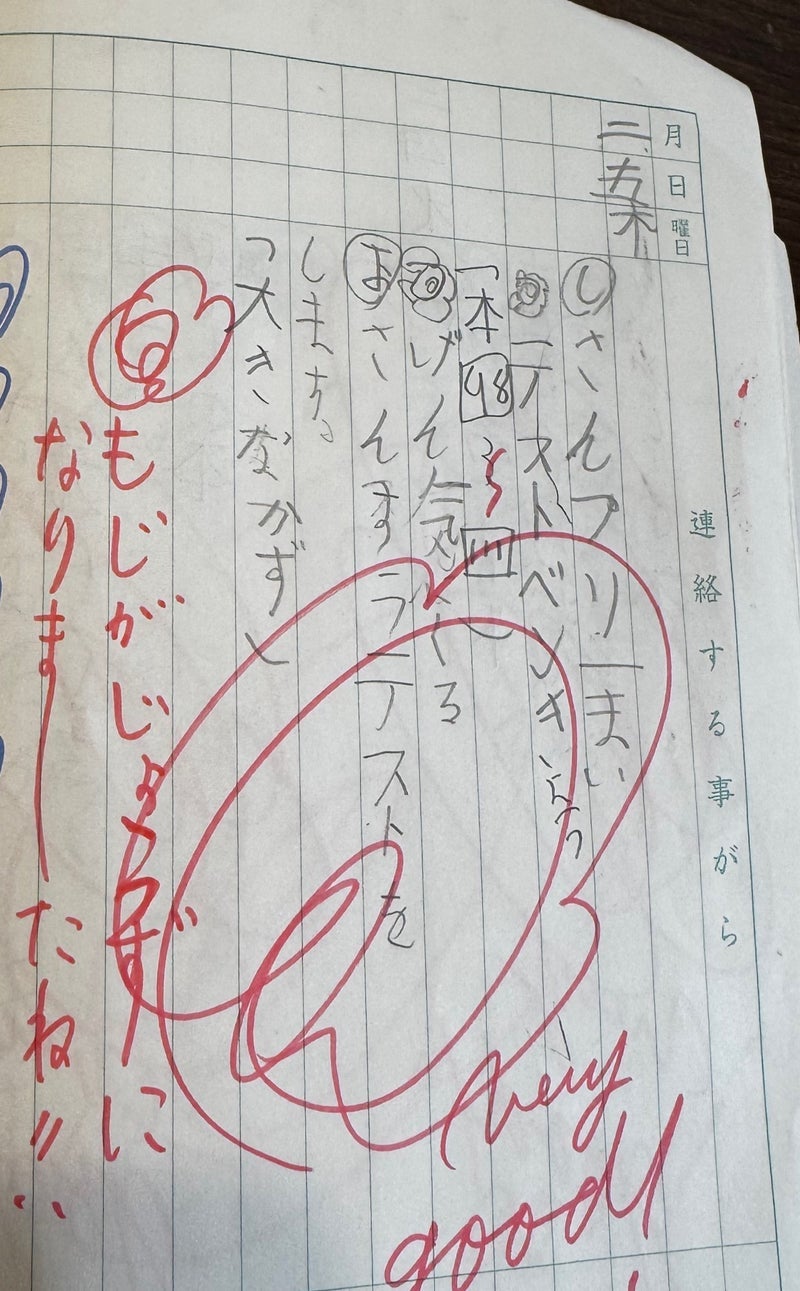 月 日 曜日
連絡する事がら
二 五 木
し さんプリ一まい
テストべんきょう
一本 48 四
げん気でくる
さんすうテストを
します。
つ大きなかずと
もじがじょうずに
なりましたね!!
Very
good!